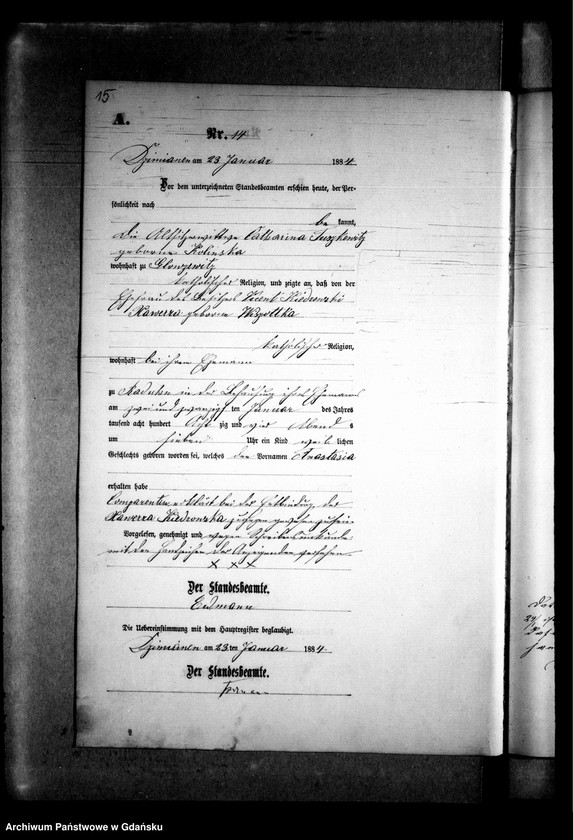 15
A.
Nr. 14
Dzimianen am 23 Januar 1884
Vor dem unterzeichneten Standesbeamten erschien heute, der Per-
sönlichkeit nach
be kannt,
die Altsitzerwittwe Catharina Tuszkewitz
geborene Kolinska
wohnhaft zu
katholischer Religion, und zeigte an, daß von der
Ehefrau des Besitzers
Xawerra geborene
katholischer Religion,
wohnhaft bei ihrem Ehemann
zu Raduhn in der Behausung ihres Ehemanns
am zwei und zwanzigsten Januar des Jahres
tausend acht hundert Acht zig und vier Abend s
um sieben Uhr ein Kind weib lichen
Geschlechts geboren worden sei, welches den Vornamen Anastasia
erhalten habe
Comparentin erklärt bei der Entbindung der
Xawerra zugegen gewesen zu sein
Vorgelesen, genehmigt und wegen Schreibensunkunde
mit den Handzeichen der Anzeigenden versehen
x x x
Der Standesbeamte.
Erdmann
Die Uebereinstimmung mit dem Hauptregister beglaubigt.
Dzimianen am 23 ten Januar 1884.
Der Standesbeamte.
Archiwum Państwowe w Gdańsku